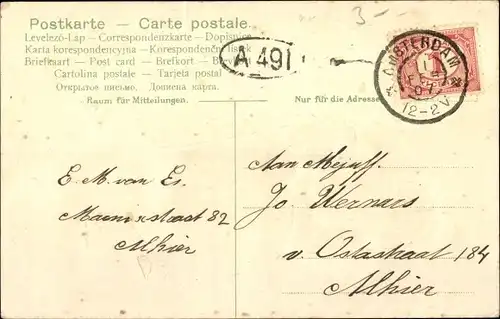 3-
Postkarte — Carte postale.
Levelező-Lap — Correspondenzkarte — Dopisnice
Karta korespondencyjna — Korespondenční lístek
Briefkaart — Post card — Brefkort — Brevkort
Cartolina postale — Tarjeta postal
Открытое письмо. Дописна карта.
Raum für Mitteilungen.
Nur für die Adresse
A 491
AMSTERDAM
12-2V
E. M. van Es.
82
Alhier
Aan Mejuff.
Jo Wernars
v. Ostadestraat 184
Alhier